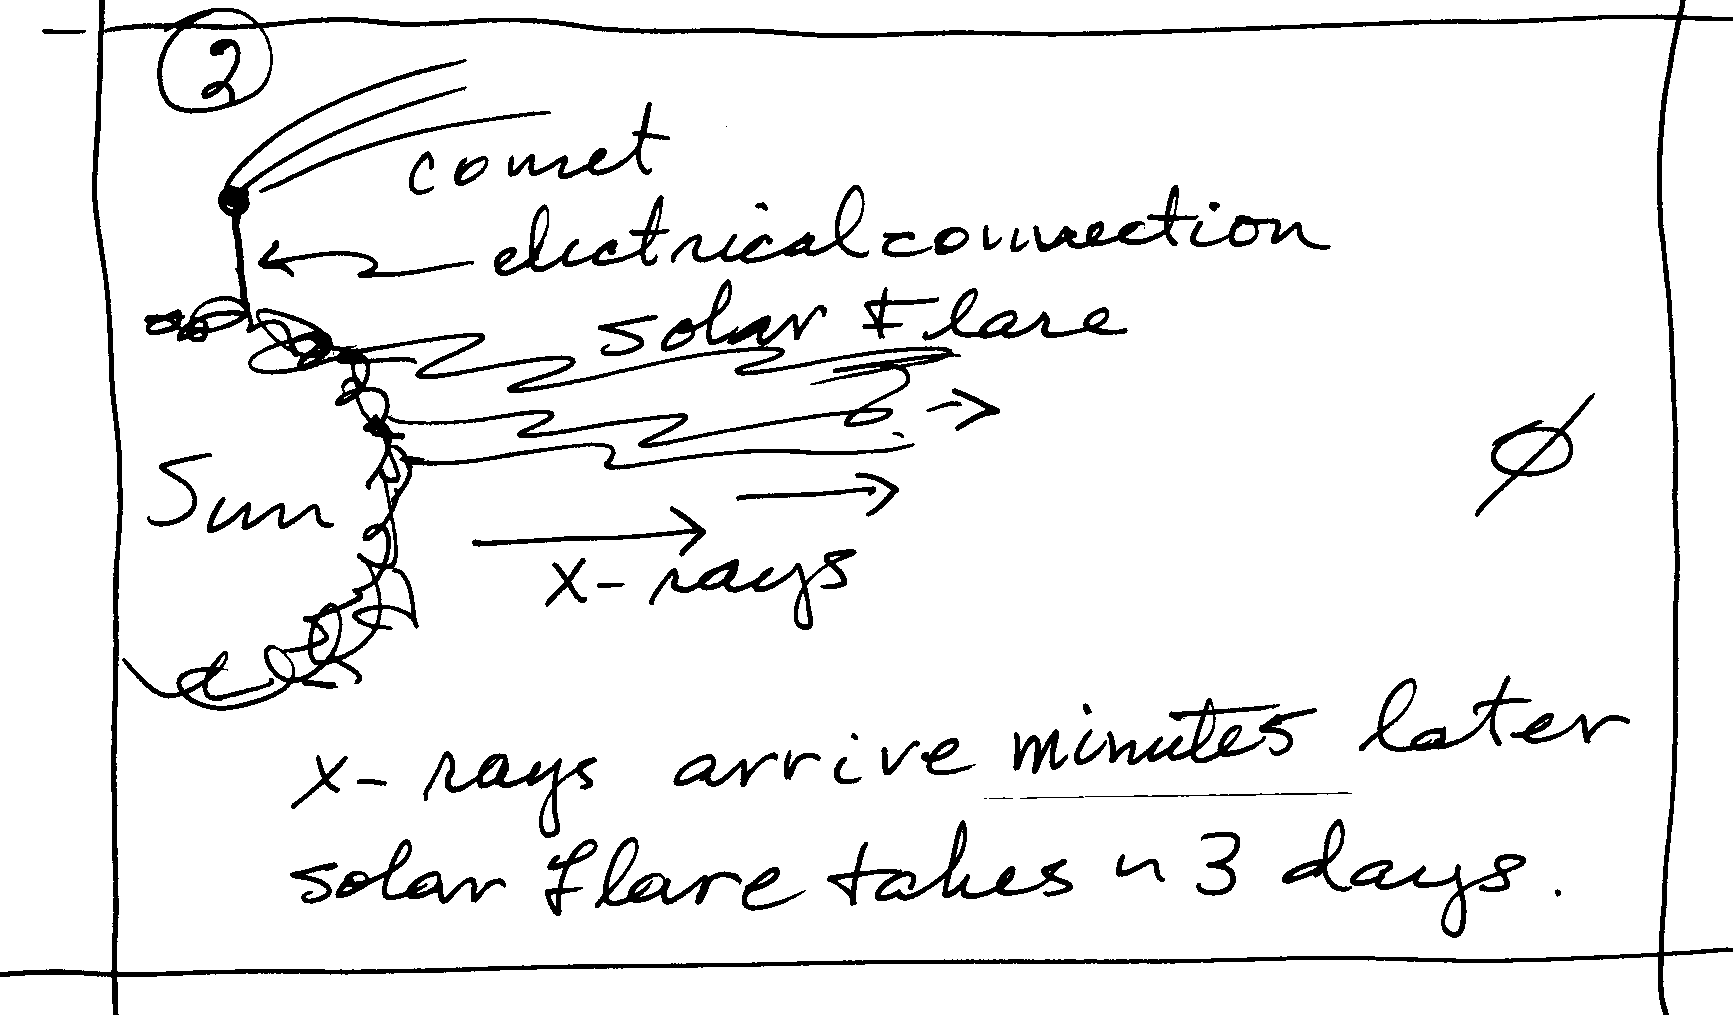 2
comet
electrical connection
solar flare
Sun
x-rays
x-rays arrive minutes later
solar flare takes ~ 3 days.